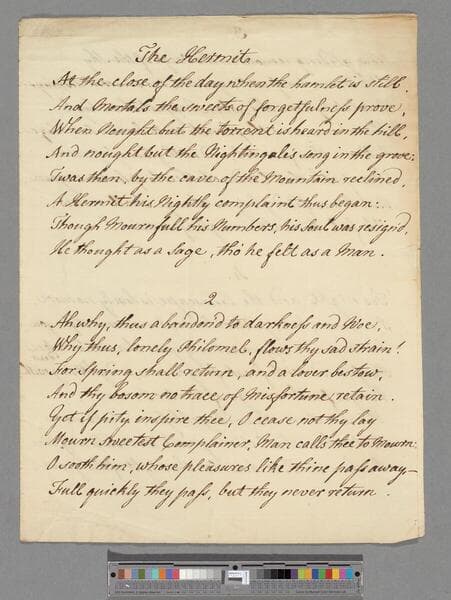 The Hermit
At the close of the day when the hamlet is still,
And Mortals the sweets of forgetfulness prove,
When Nought but the torrent is heard in the hill,
And nought but the Nightingale's song in the grove;
Twas then, by the cave of the Mountain reclined,
A Hermit his Nightly complaint thus began:
Though Mournfull his Numbers, his soul was resign'd,
He thought as a Sage, tho' he felt as a Man.
2
Ah why, thus abandond to darkness and Woe,
Why thus, lonely Philomel, flows thy sad strain!
For Spring shall return, and a lover bestow,
And thy bosom no trace of Misfortune retain.
Yet if pity inspire thee, O cease not thy lay
Mourn Sweetest Complainer, Man calls thee to Mourn:
O sooth him, whose pleasures like thine pass away—
Full quickly they pass, but they never return.